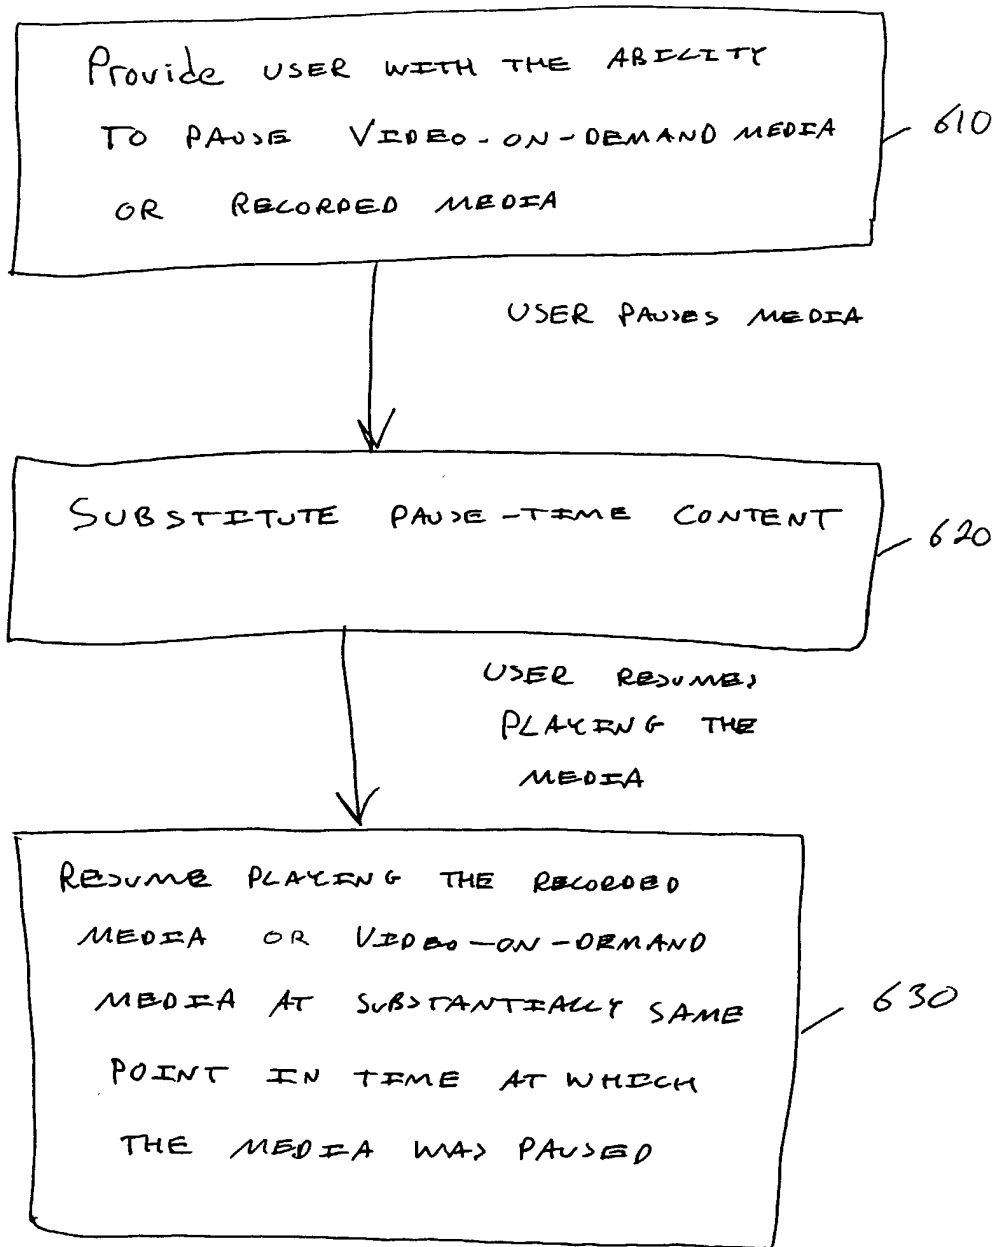 Provide USER WITH THE ABILITY
TO PAUSE VIDEO-ON-DEMAND MEDIA
OR RECORDED MEDIA
610
USER PAUSES MEDIA
SUBSTITUTE PAUSE-TIME CONTENT
620
USER RESUMES
PLAYING THE
MEDIA
RESUME PLAYING THE RECORDED
MEDIA OR VIDEO-ON-DEMAND
MEDIA AT SUBSTANTIALLY SAME
POINT IN TIME AT WHICH
THE MEDIA WAS PAUSED
630